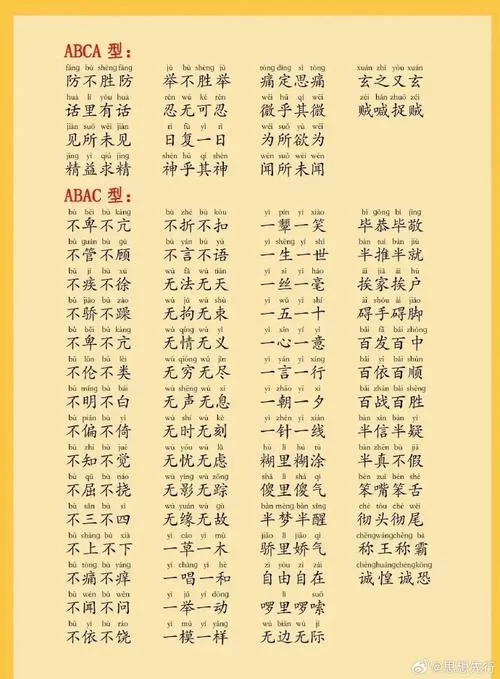 ABCA 型：
fáng bú shèng fáng jǔ bú shèng jǔ tòng dìng sī tòng xuán zhī yòu xuán
防不胜防 举不胜举 痛定思痛 玄之又玄
huà lǐ yǒu huà rěn wú kě rěn wēi hū qí wēi zéi hǎn zhuō zéi
话里有话 忍无可忍 微乎其微 贼喊捉贼
jiàn suǒ wèi jiàn rì fù yí rì wéi suǒ yù wéi
见所未见 日复一日 为所欲为
jīng yì qiú jīng shén hū qí shén wén suǒ wèi wén
精益求精 神乎其神 闻所未闻
ABAC 型：
bù bēi bú kàng bù zhé bú kòu yì pín yí xiào bì gōng bì jìng
不卑不亢 不折不扣 一颦一笑 毕恭毕敬
bù guǎn bú gù bù yán bù yǔ yì shēng yí shì bàn tuī bàn jiù
不管不顾 不言不语 一生一世 半推半就
bù jí bù xú wú fǎ wú tiān yì sī yì háo āi jiā āi hù
不疾不徐 无法无天 一丝一毫 挨家挨户
bù jiāo bú zào wú jū wú shù yì wǔ yì shí ài shǒu ài jiǎo
不骄不躁 无拘无束 一五一十 碍手碍脚
bù bēi bú kàng wú qíng wú yì yì xīn yí yì bǎi fā bǎi zhòng
不卑不亢 无情无义 一心一意 百发百中
bù lún bú lèi wú qióng wú jìn yì yán yì xíng bǎi yī bǎi shùn
不伦不类 无穷无尽 一言一行 百依百顺
bù míng bù bái wú shēng wú xī yì zhāo yì xī bǎi zhàn bǎi shèng
不明不白 无声无息 一朝一夕 百战百胜
bù piān bù yǐ wú shí wú kè yì zhēn yí xiàn bàn xìn bàn yí
不偏不倚 无时无刻 一针一线 半信半疑
bù zhī bù jué wú yōu wú lǜ hú lǐ hú tu bàn zhēn bù jiǎ
不知不觉 无忧无虑 糊里糊涂 半真不假
bù qū bù náo wú yǐng wú zōng shǎ lǐ shǎ qì bèn zuǐ bèn shé
不屈不挠 无影无踪 傻里傻气 笨嘴笨舌
bù sān bú sì wú yuán wú gù bàn mèng bàn xǐng chè tóu chè wěi
不三不四 无缘无故 半梦半醒 彻头彻尾
bú shàng bú xià yì cǎo yí mù jiāo lǐ jiāo qì chēng wáng chēng bà
不上不下 一草一木 骄里娇气 称王称霸
bú tòng bù yǎng yí chàng yí hè zì yóu zì zài chéng huáng chéng kǒng
不痛不痒 一唱一和 自由自在 诚惶诚恐
bù wén bú wèn yì jǔ yí dòng luō lǐ luō suo
不闻不问 一举一动 啰里啰嗦
bù yī bù ráo yì mú yí yàng wú biān wú jì
不依不饶 一模一样 无边无际
@思想先行